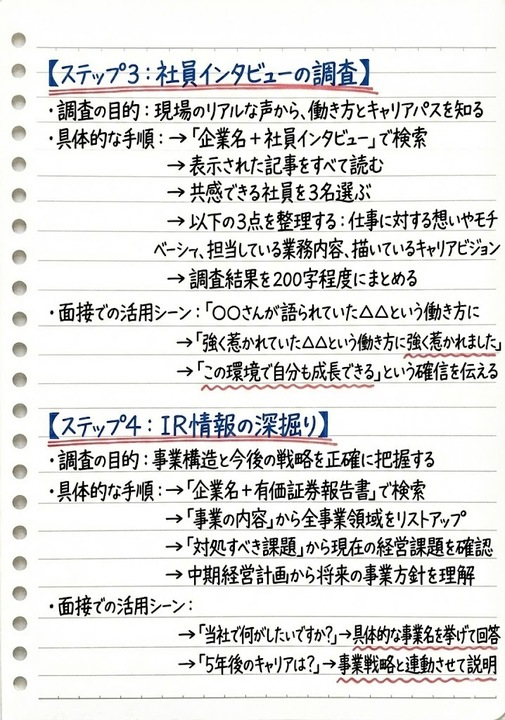 【ステップ3：社員インタビューの調査】
・調査の目的：現場のリアルな声から、働き方とキャリアパスを知る
・具体的な手順：→「企業名＋社員インタビュー」で検索
→表示された記事をすべて読む
→共感できる社員を3名選ぶ
→以下の3点を整理する：仕事に対する想いやモチ
ベーシァ、担当している業務内容、描いているキャリアビジョン
→調査結果を200字程度にまとめる
・面接での活用シーン：「〇〇さんが語られていた△△という働き方に
→「強く惹かれていた△△という働き方に強く惹かれました」
→「この環境で自分も成長できる」という確信を伝える
【ステップ4：IR情報の深掘り】
・調査の目的：事業構造と今後の戦略を正確に把握する
・具体的な手順：→「企業名＋有価証券報告書」で検索
→「事業の内容」から全事業領域をリストアップ
→「対処すべき課題」から現在の経営課題を確認
→中期経営計画から将来の事業方針を理解
・面接での活用シーン：
→「当社で何がしたいですか？」→具体的な事業名を挙げて回答
→「5年後のキャリアは？」→事業戦略と連動させて説明